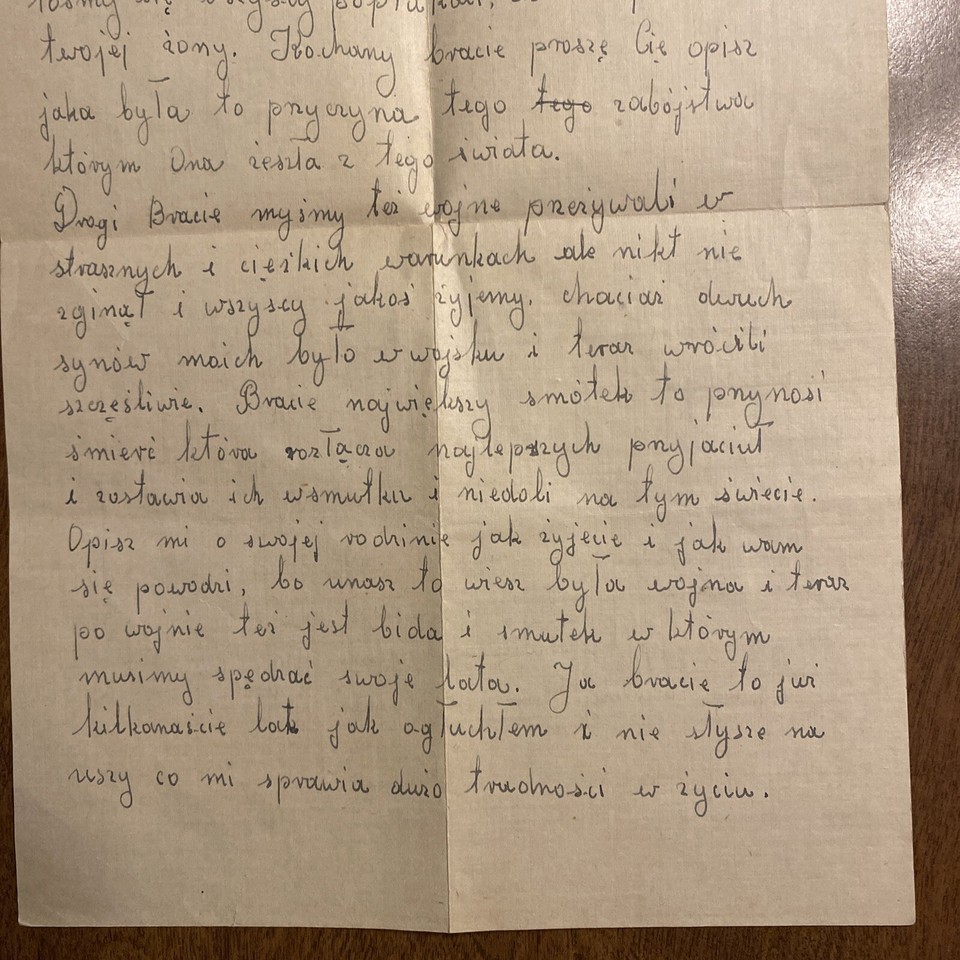 się wszyscy
twojej żony. Kochany bracie proszę Cię opisz
jaka była to przyczyna tego tego zabójstwa
którym Ona zeszła z tego świata.
Drogi Bracie myśmy też wojne przeżywali w
strasznych i ciężkich warunkach ale nikt nie
zginął i wszyscy jakoś żyjemy. chaciaż dwuch
synów moich było w wojsku i teraz wrócili
szczęśliwie. Bracie największy smótek to przynosi
śmierć która rozłącza najlepszych przyjaciuł
i zostawia ich wsmutku i niedoli na tym świecie.
Opisz mi o swojej rodzinie jak żyjecie i jak wam
się powodzi, bo unasz to wiesz była wojna i teraz
po wojnie też jest bida i smutek w którym
musimy spędzać swoje lata. Ja bracie to już
kilkanaście lat jak ogłuchłem i nie słysze na
uszy co mi sprawia dużo trudności w życiu.